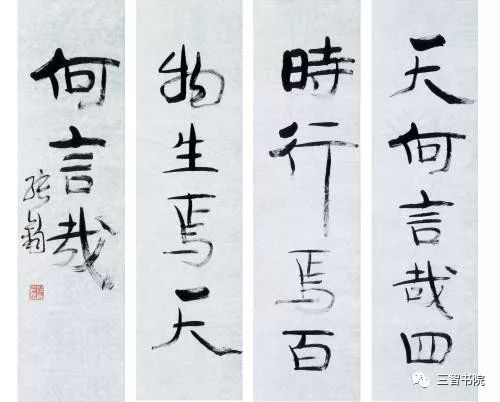 天何言哉四
時行焉百
物生焉天
何言哉
三智书院